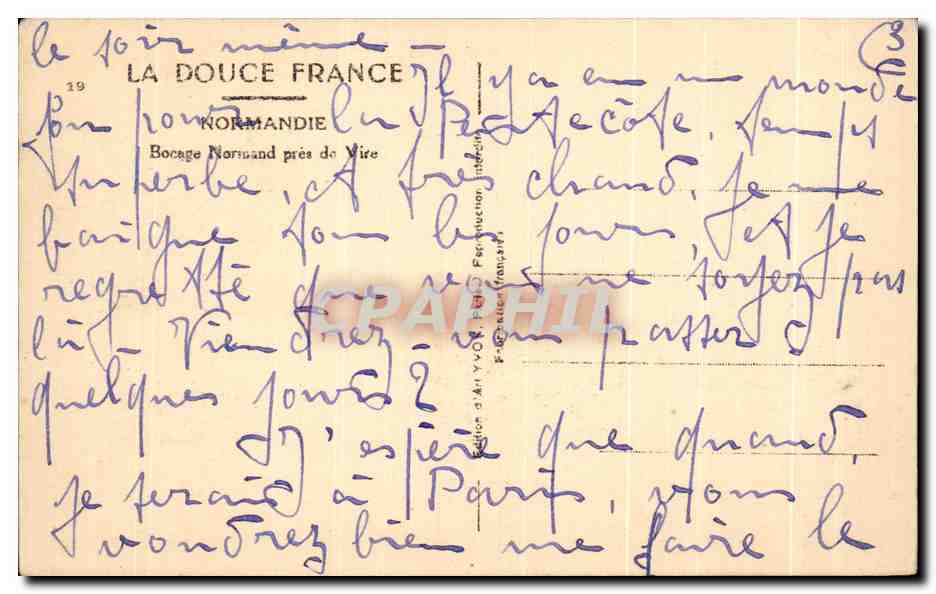 3
le soir même -
19
LA DOUCE FRANCE
Il y a eu un monde
NORMANDIE
fou pour la Pentecôte, temps
Bocage Normand près de Vire
superbe, et très chaud. Je me
baigne tous les jours, et je
regrette que vous ne soyez pas
là - Viendrez-vous passer
quelques jours ?
J'espère que quand,
je serais à Paris, vous
voudrez bien me faire le
Edition d'Art YVON, PARIS Reproduction interdite
Fabrication française
CPAPHIL